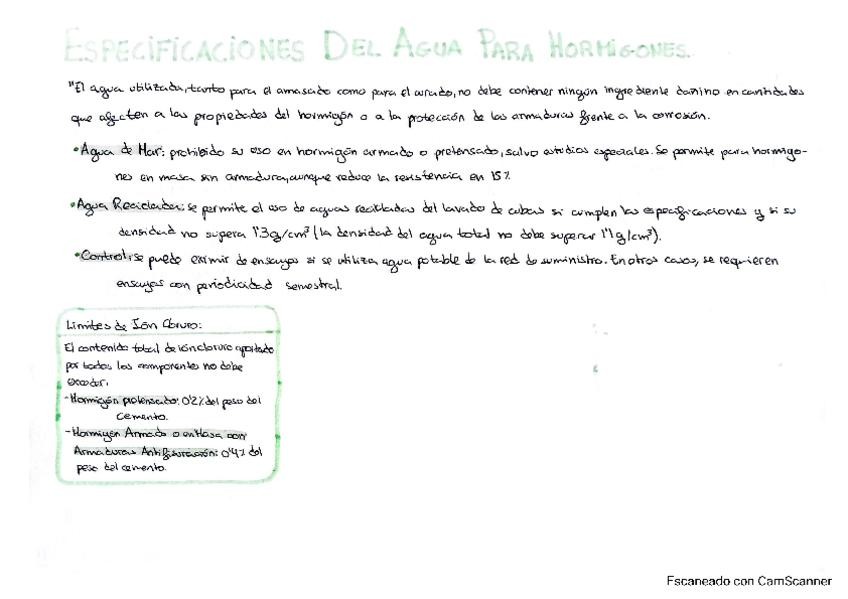 ESPECIFICACIONES DEL AGUA PARA HORMIGONES.
"El agua utilizada, tanto para el amasado como para el curado, no debe contener ningún ingrediente dañino en cantidades
que afecten a las propiedades del hormigón o a la protección de las armaduras frente a la corrosión.
•Agua de Mar: prohibido su uso en hormigón armado o pretensado, salvo estudios especiales. Se permite para hormigo-
nes en masa sin armadura, aunque reduce la resistencia en 15%
•Agua Reciclada: se permite el uso de aguas recicladas del lavado de cubas si cumplen las especificaciones y si su
densidad no supera 1'3g/cm³ (la densidad del agua total no debe superar 1'1g/cm³).
•Control: se puede eximir de ensayos si se utiliza agua potable de la red de suministro. En otros casos, se requieren
ensayos con periodicidad semestral.
Límites de Ión Cloruro:
El contenido total de ión cloruro aportado
por todos los componentes no debe
exceder:
-Hormigón pretensado: 0'2% del peso del
cemento.
-Hormigón Armado o en Masa con
Armaduras Antifisuración: 0'4% del
peso del cemento.
Escaneado con CamScanner